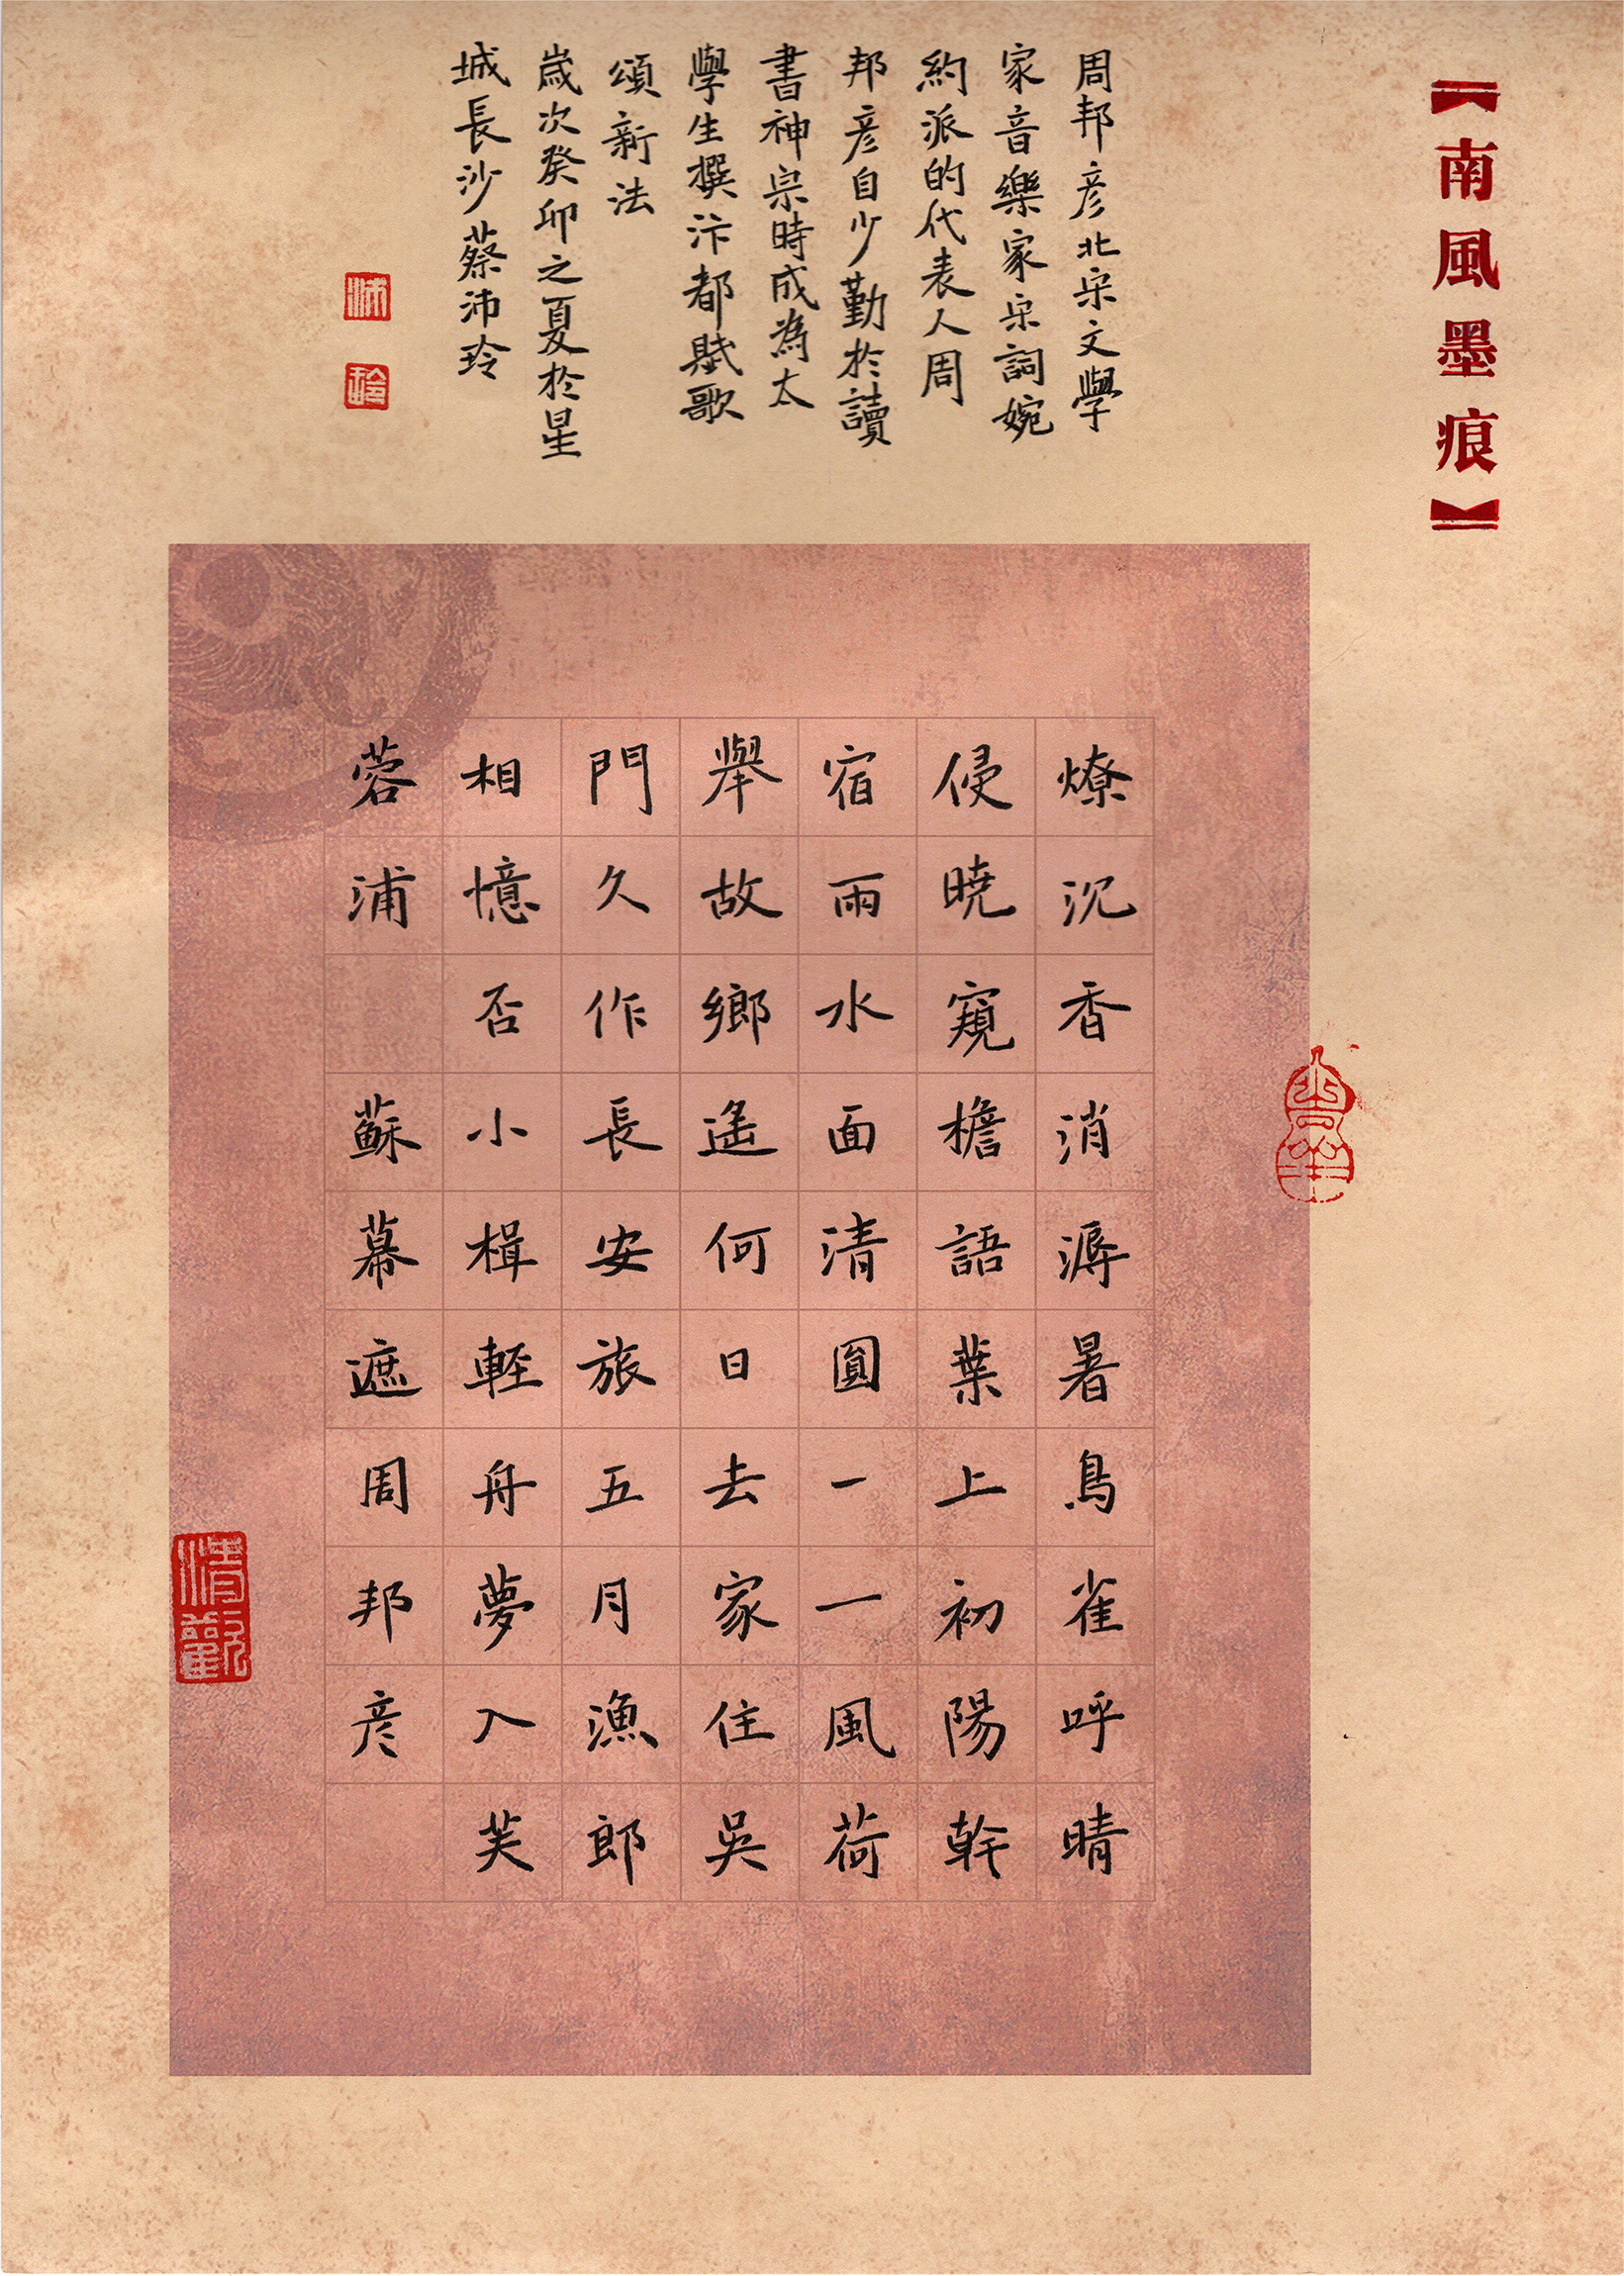 【南風墨痕】
周邦彦北宋文學
家音樂家宋詞婉
約派的代表人周
邦彦自少勤於讀
書神宗時成為太
學生撰汴都賦歌
頌新法
歲次癸卯之夏於星
城長沙蔡沛玲
沛
玲
燎沉香消溽暑鳥雀呼晴
侵曉窺檐語葉上初陽幹
宿雨水面清圓一一風荷
舉故鄉遥何日去家住吳
門久作長安旅五月漁郎
相憶否小楫軽舟夢入芙
蓉浦 蘇幕遮周邦彦
清觀